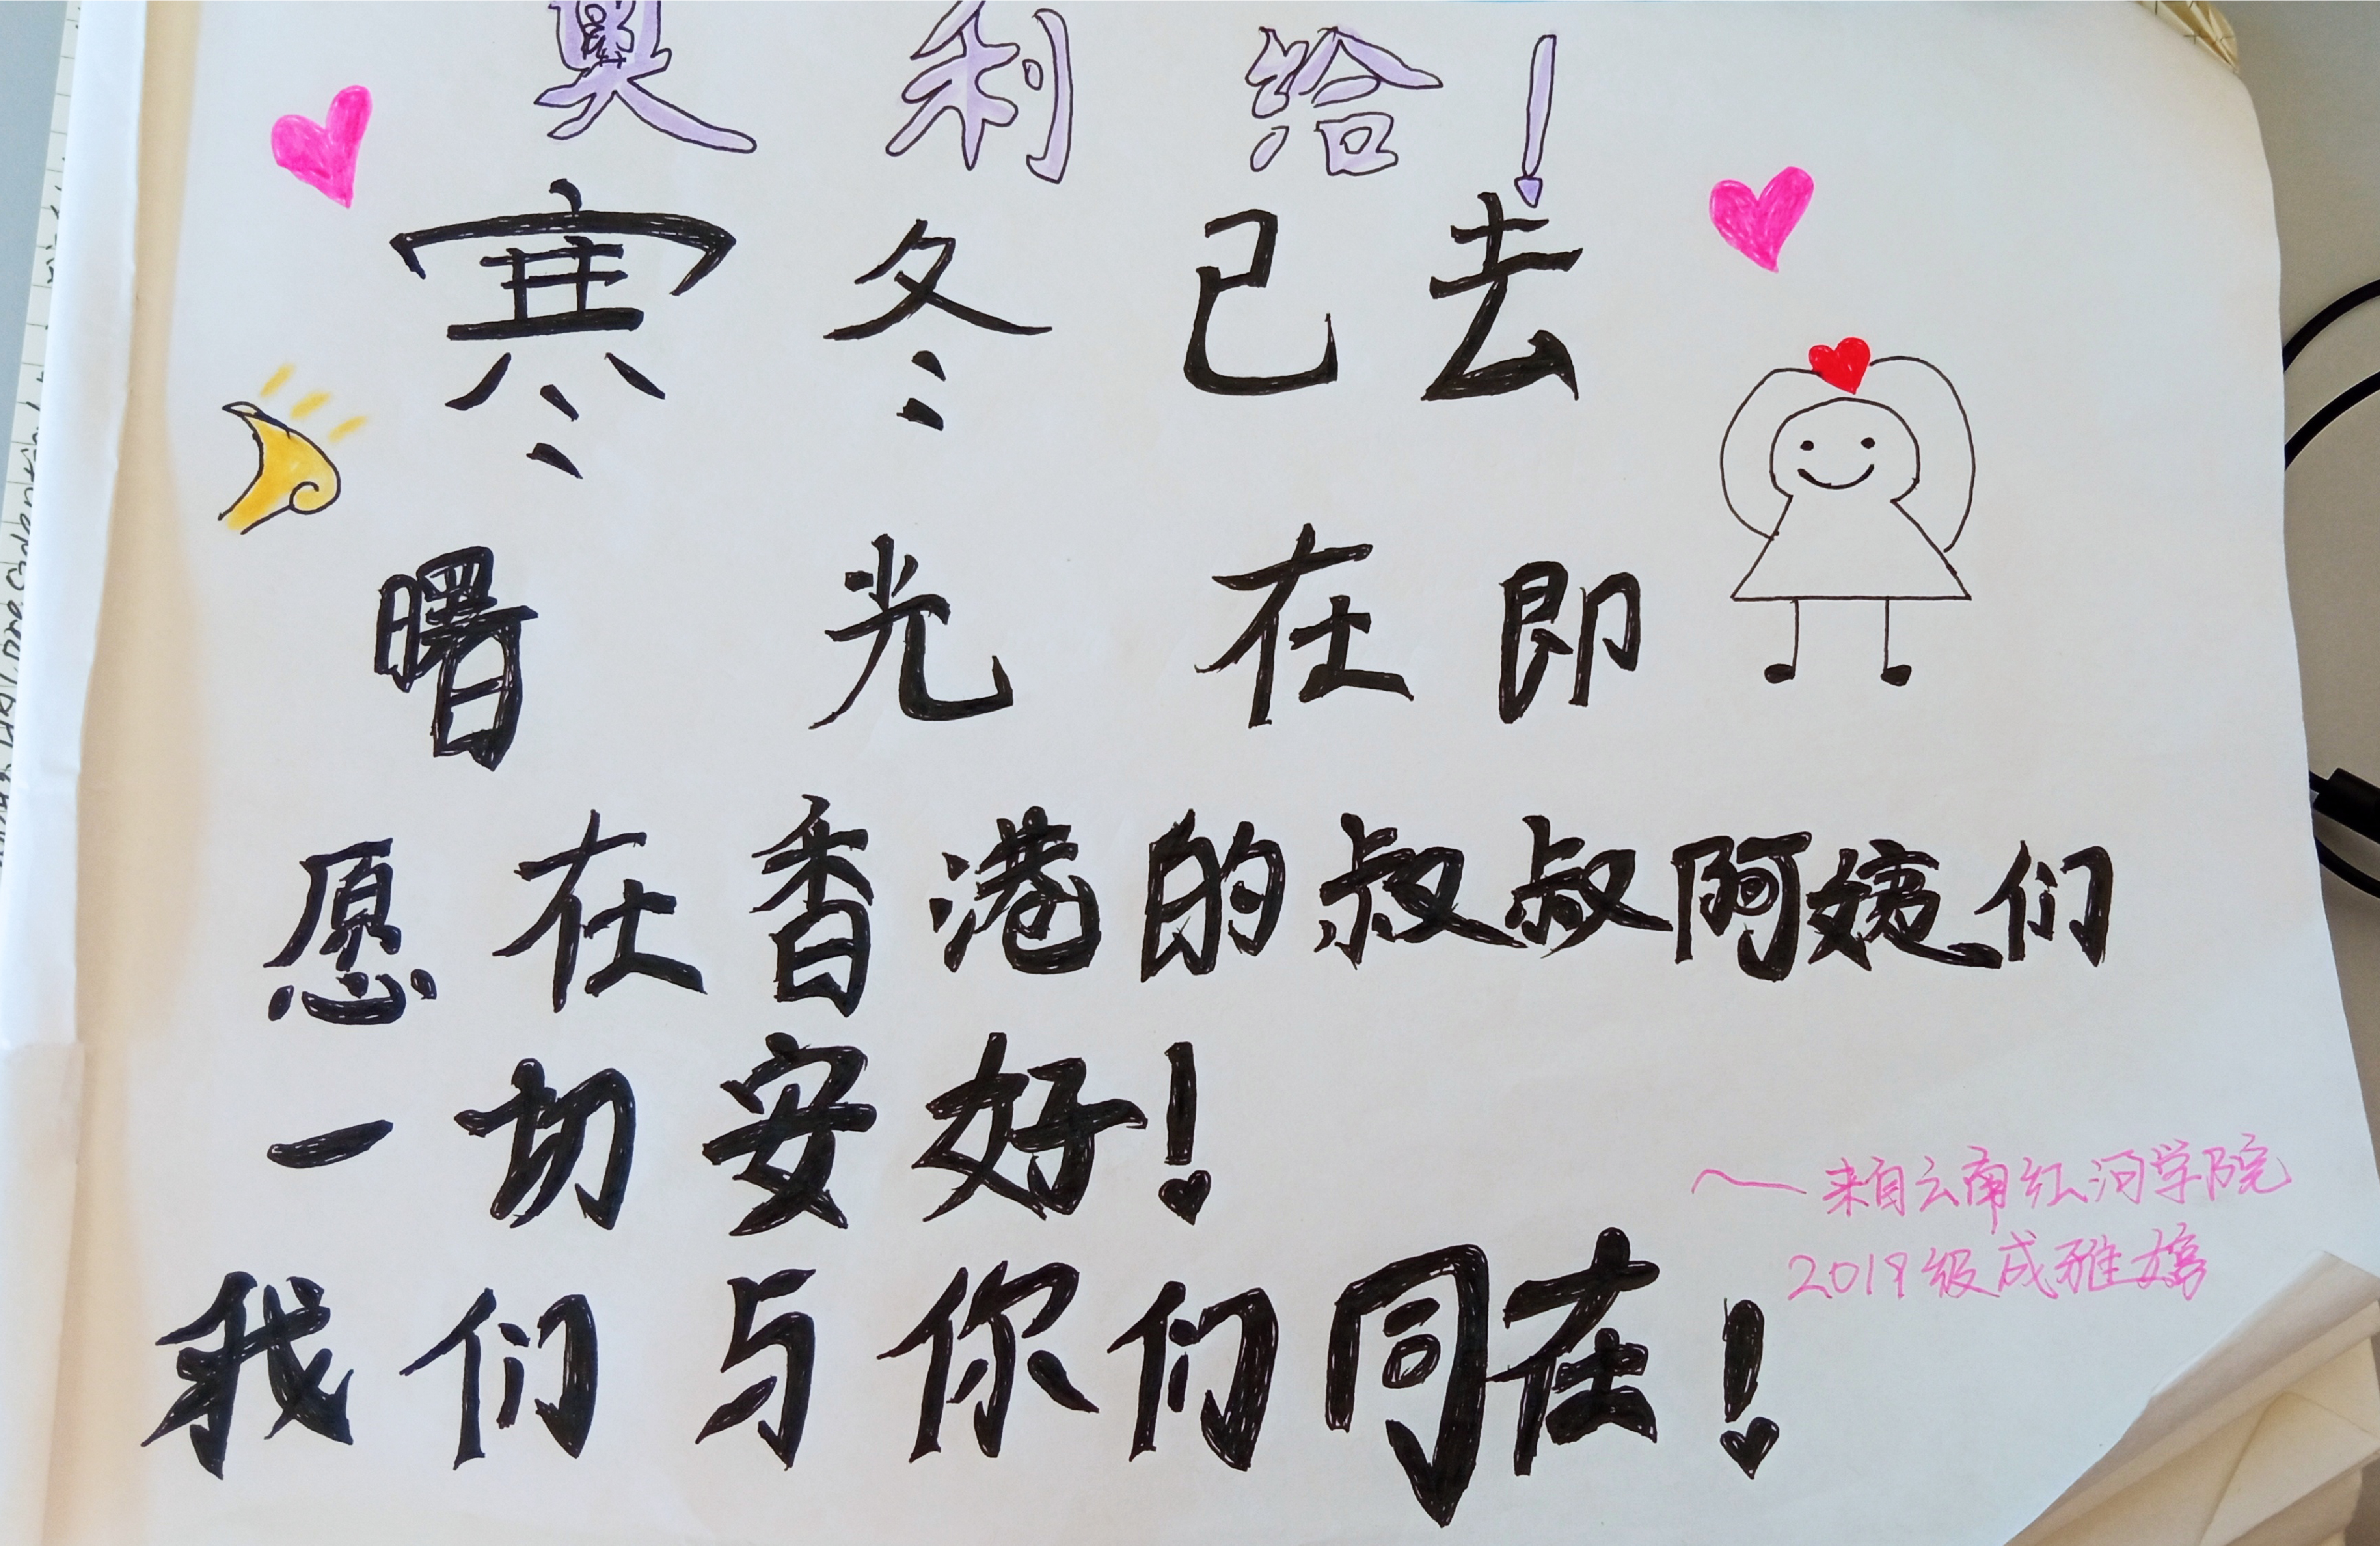 奥利给！
寒冬已去
曙光在即
愿在香港的叔叔阿姨们
一切安好！
我们与你们同在！
～来自云南红河学院
2019级成雅婷